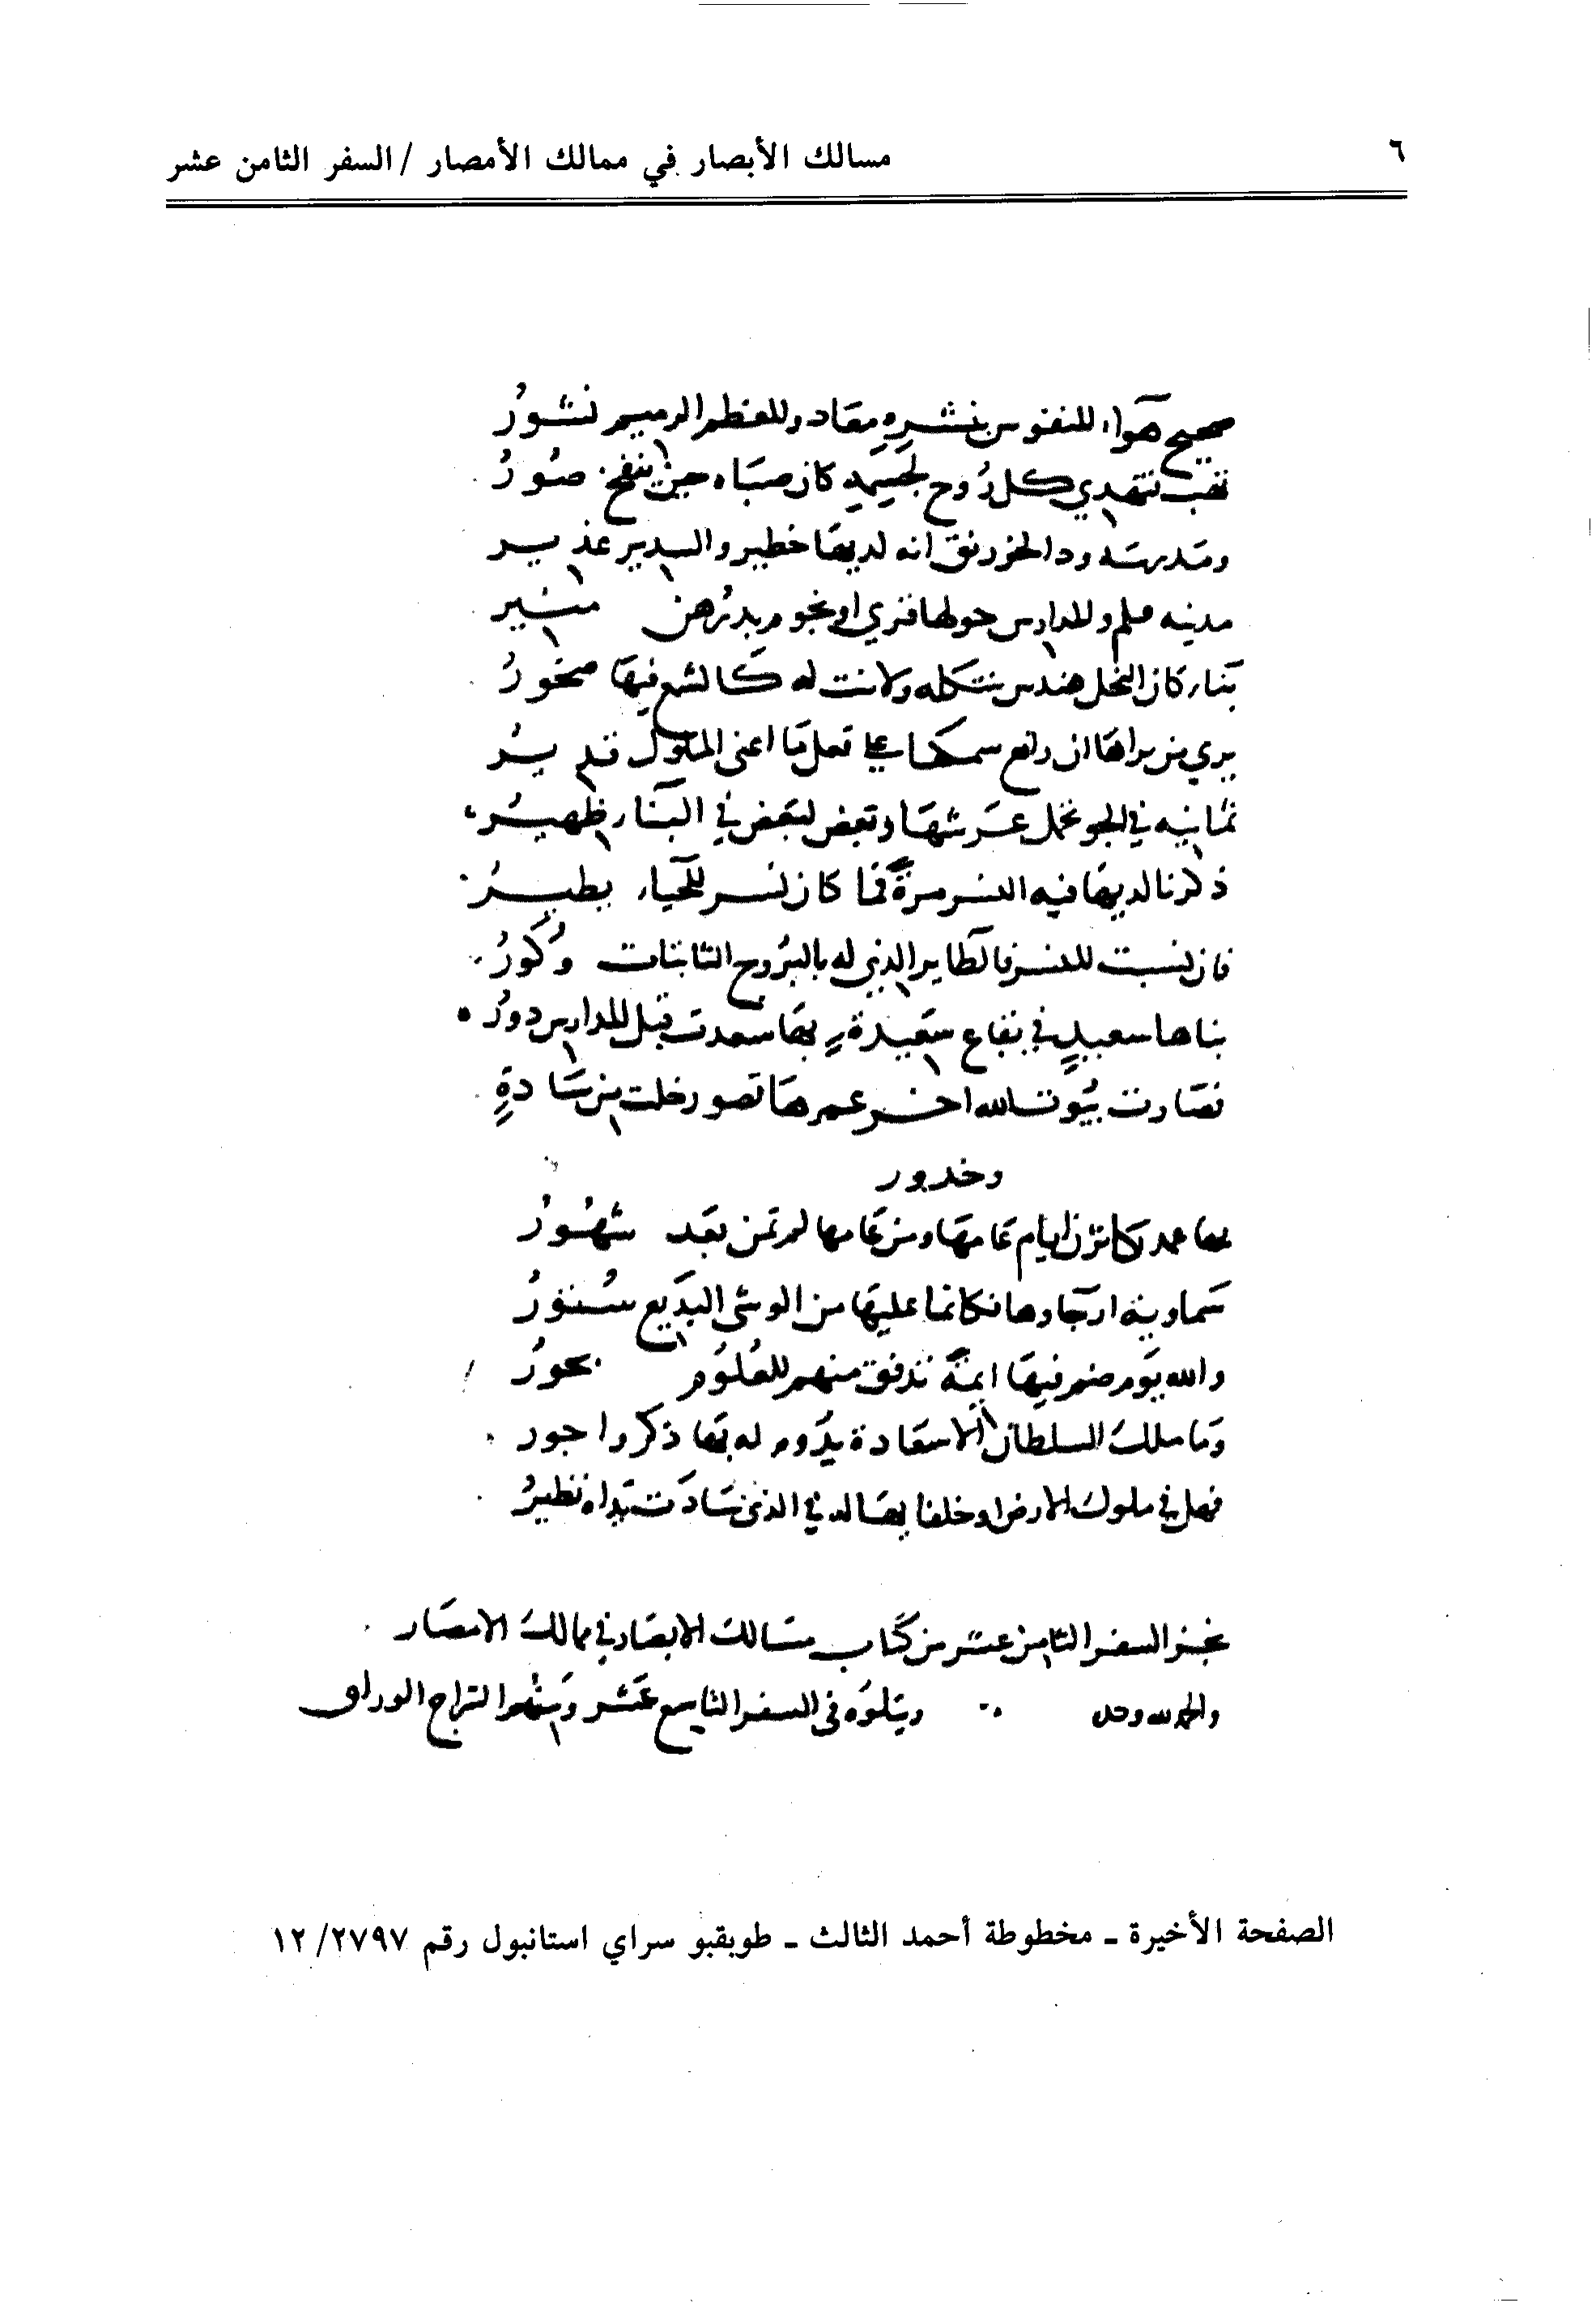 ٦
مسالك الأبصار في ممالك الأمصار / السفر الثامن عشر
صحيح هواء للنفوس بنشره معاد وللعظم الرميم نشورُ
تهب تهدي كل رُوح لجسمه كان صباه حين ينفخ صُورُ
ومدرسة ود الخورنق انه لديها خطير والسدير غدير
مدينه علم والمدارس حولها قري او نجوم بدرُهن منير
بناء كان النحل هندس شكله ولانت له كالشمع فيها صخورُ
يري من يراها ان رافع سمكها علي فعل ما اعنى الملوك قدير
ثمانيه في الجو تحمل عرشها وبعض لبعض في البناء ظهيرُ
ذكرنا لديها قبه النسر مرة فما كاد نسر للحياء يطيرُ
فان نسبت للنسر فالطاير الذي له بالبرُوج الثابتات وكُورُ
بناها سعيدٍ في بقاع سعيدةٍ بها سعدت قبل المدارس دورُ
فصارت بيُوت الله اخر عمرها قصور خلت من سادةٍ
وخدور
بها عمد كاثرن ايام عامها ومن عامها لم تمض بعد شهُورُ
سماوية ارجاوها فكانما عليها من الوشي البديع سُتورُ
والله يوم ضم فيها ايمةً تدفق منهم للعُلوُم بحورُ
وما ملك السلطان الا سعادة يدوم له بها ذكر واجور
فهل في ملوك الارض او خلفايها له في الذي شادت يداه نظيرُ
نجز السفر الثامن عشر من كتاب مسالك الابصار في ممالك الامصار
والحمد لله وحده ويتلوُه في السفر التاسع عشر ومنهم السراج الوراق
الصفحة الأخيرة ـ مخطوطة أحمد الثالث ـ طوبقبو سراي استانبول رقم ٢٧٩٧/ ١٢